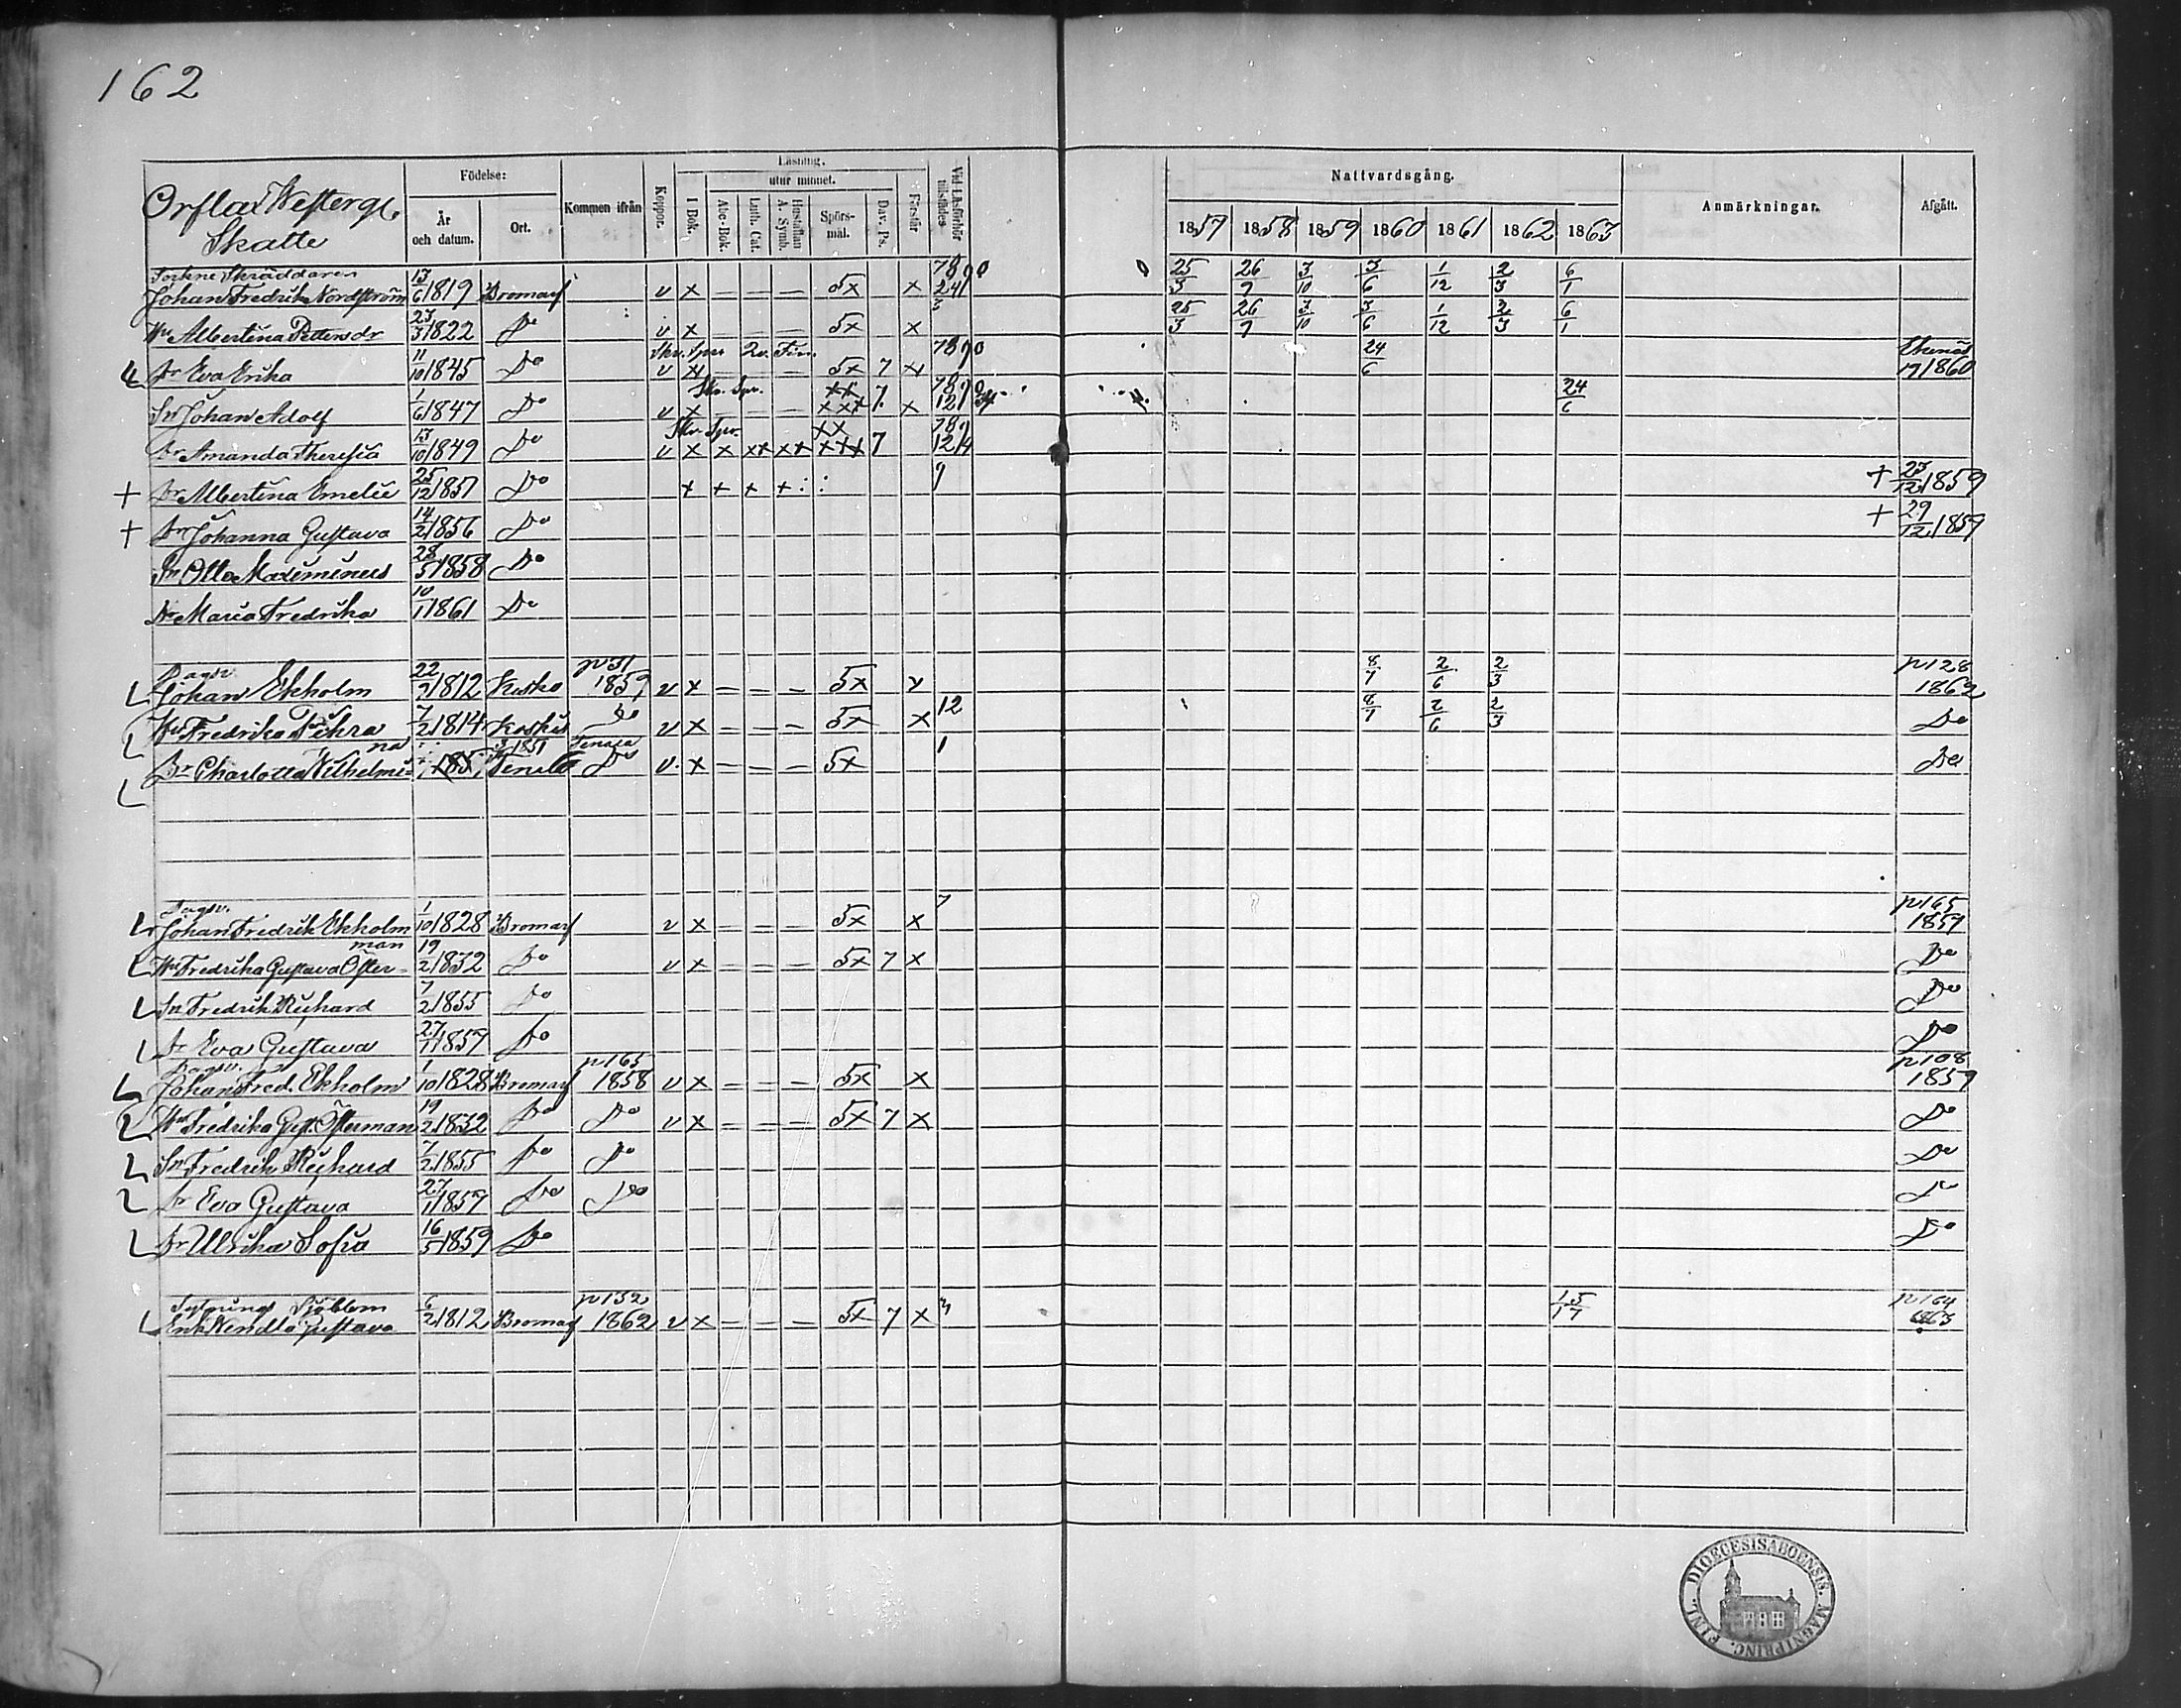 162
Orflax Westerg.
Skatte
Födelse:
År och datum.
Ort.
Kommen ifrån
Koppor.
Läsning.
I Bok.
utur minnet.
Abc-Bok.
Luth. Cat.
Hustaflan A. Symb.
Spörsmål.
Dav. Ps.
Förstår
Vid Läsförhör tillstädes
Nattvardsgång.
1857 1858 1859 1860 1861 1862 1863
Anmärkningar.
Afgått.
Sockne Skräddaren
Johan Fredrik Nordström 13/6 1819 Bromarf v x – – – 5x x 25/3 26/9 3/10 3/6 1/12 2/3 6/1
Hu Albertina Pettersdr 23/3 1822 Do v x – – – 5x x 25/3 26/9 3/10 3/6 1/12 2/3 6/1
Dr Eva Erika 11/10 1845 Do v x – – – 5x 7 x 24/6 Ekenäs 1860
Sn Johan Adolf 1/6 1847 Do v x – – – xxx 7 x 24/6
Dr Amanda Theresia 13/10 1849 Do v x x xx xx xxx 7
+ Dr Albertina Emelie 25/12 1851 Do x x x x + 23/12 1859
+ Dr Johanna Gustava 14/2 1856 Do + 29/12 1859
Sn Otto Maximinus 28/5 1858 Do
Dr Maria Fredrika 10/1 1861 Do
Dagsv. p 51 p 128
Johan Ekholm 22/9 1812 Kisko 1859 v x – – – 5x x 8/7 2/6 2/3 1862
Hu Fredrika 7/2 1814 Koskis Do v x – – – 5x x 12 8/7 2/6 2/3 Do
Dr Charlotta Wilhelmina 1851 Tenala Do v x – – – 5x 1 Do
Dagsv. 7 p 165
Johan Fredrik Ekholm 1/10 1828 Bromarf v x – – – 5x x 1857
Hu Fredrika Gustava Österman 19/2 1832 Do v x – – – 5x 7 x Do
Sn Fredrik Richard 7/2 1855 Do Do
Dr Eva Gustava 27/1 1857 Do Do
Dagsv. p 165 p 108
Johan Fred. Ekholm 1/10 1828 Bromarf 1858 v x – – – 5x x 1859
Hu Fredrika Gust. Österman 19/2 1832 Do Do v x – – – 5x 7 x Do
Sn Fredrik Richard 7/2 1855 Do Do Do
Dr Eva Gustava 27/1 1857 Do Do Do
Dr Ulrika Sofia 16/5 1859 Do Do
Sjöblom p 152 p 164
Enk. Wendla Gustava 6/2 1812 Bromarf 1862 v x – – – 5x 7 x 1863
DIOECESIS ABOENSIS. MAGNI PRINC. FINL.